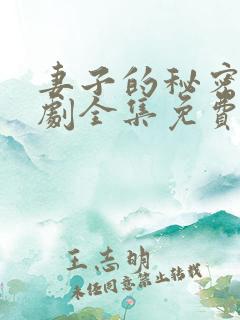 妻子的秘密
劇全集免費
王志明
未经同意禁止转载